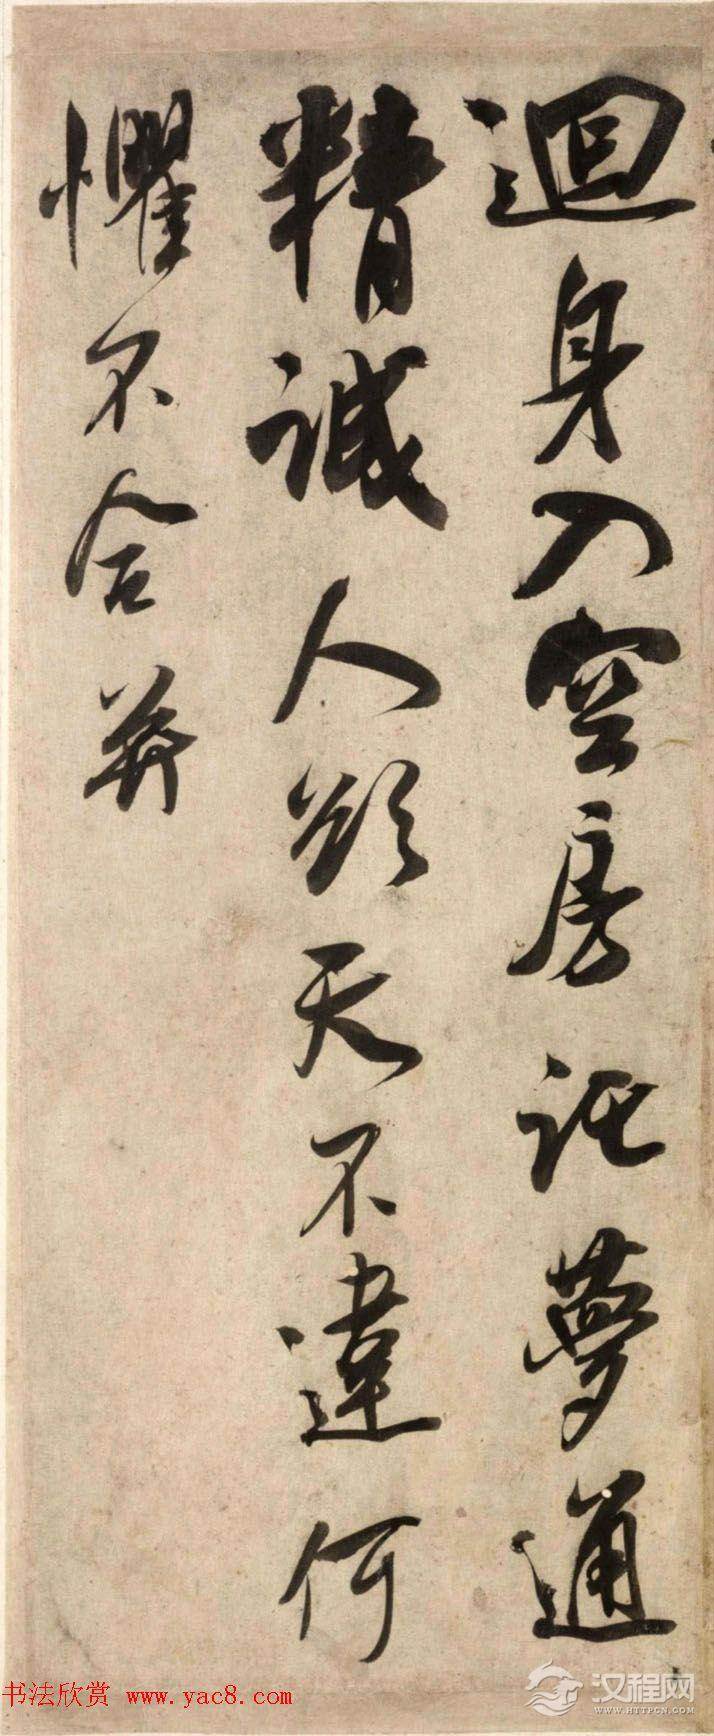 迴身入空房託夢通
精誠人欲天不違何
懼不合并
书法欣赏 www.yac8.com
汉程网
WWW.HTTPCN.COM